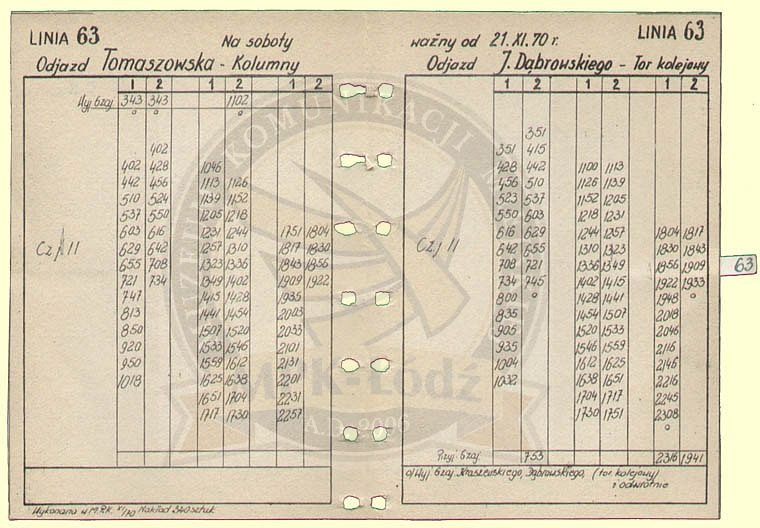 LINIA 63
Na soboty
Odjazd Tomaszowska - Kolumny
1 2 1 2 1 2
343 343 1102
o o o
402
402 428 1046
442 456 1113 1126
510 524 1139 1152
537 550 1205 1218
603 616 1231 1244 1751 1804
Cz/II 629 642 1257 1310 1817 1830
655 708 1323 1336 1843 1856
721 734 1349 1402 1909 1922
747 1415 1428 1935
813 1441 1454 2003
850 1507 1520 2033
920 1533 1546 2101
950 1559 1612 2131
1018 1625 1638 2201
1651 1704 2231
1717 1730 2257
Wykonano w M.P.K. XI/70 Nakład 340 sztuk
ważny od 21.XI.70 r.
LINIA 63
Odjazd J. Dąbrowskiego - Tor kolejowy
1 2 1 2 1 2
351
351 415
428 442 1100 1113
456 510 1126 1139
523 537 1152 1205
550 603 1218 1231
616 629 1244 1257 1804 1817
Cz/II 642 655 1310 1323 1830 1843
708 721 1336 1349 1856 1909
734 745 1402 1415 1922 1933
800 o 1428 1441 1948 o
835 1454 1507 2018
905 1520 1533 2046
935 1546 1559 2116
1004 1612 1625 2146
1032 1638 1651 2216
1704 1717 2245
1730 1751 2308
o
753 2316 1941
Kraszewskiego, Dąbrowskiego, (tor kolejowy)
i odwrotnie
63
KOMUNIKACJI
MPK-Łódź
A.D. 2006